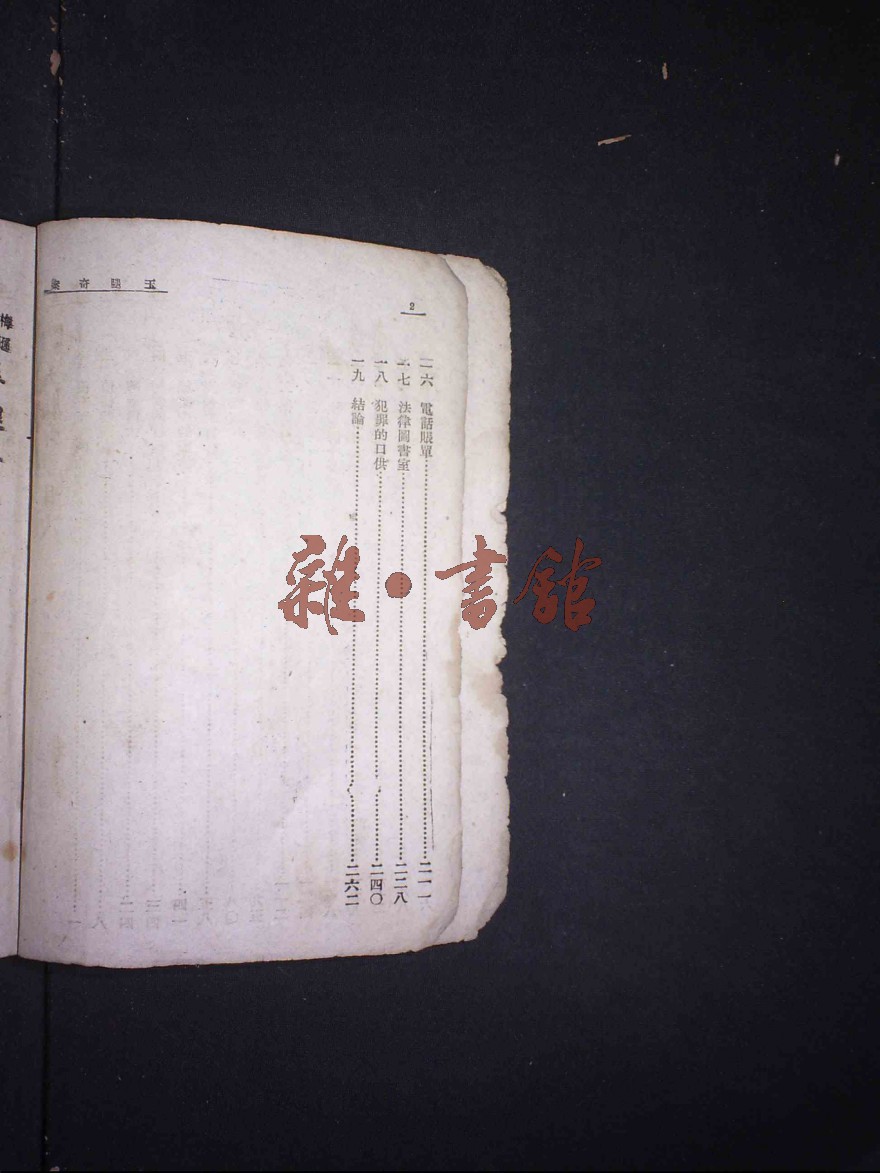 2
一六 電話賬單……二一一
一七 法律圖書室……二二八
一八 犯罪的口供……二四〇
一九 結論……二六二
雜·書館